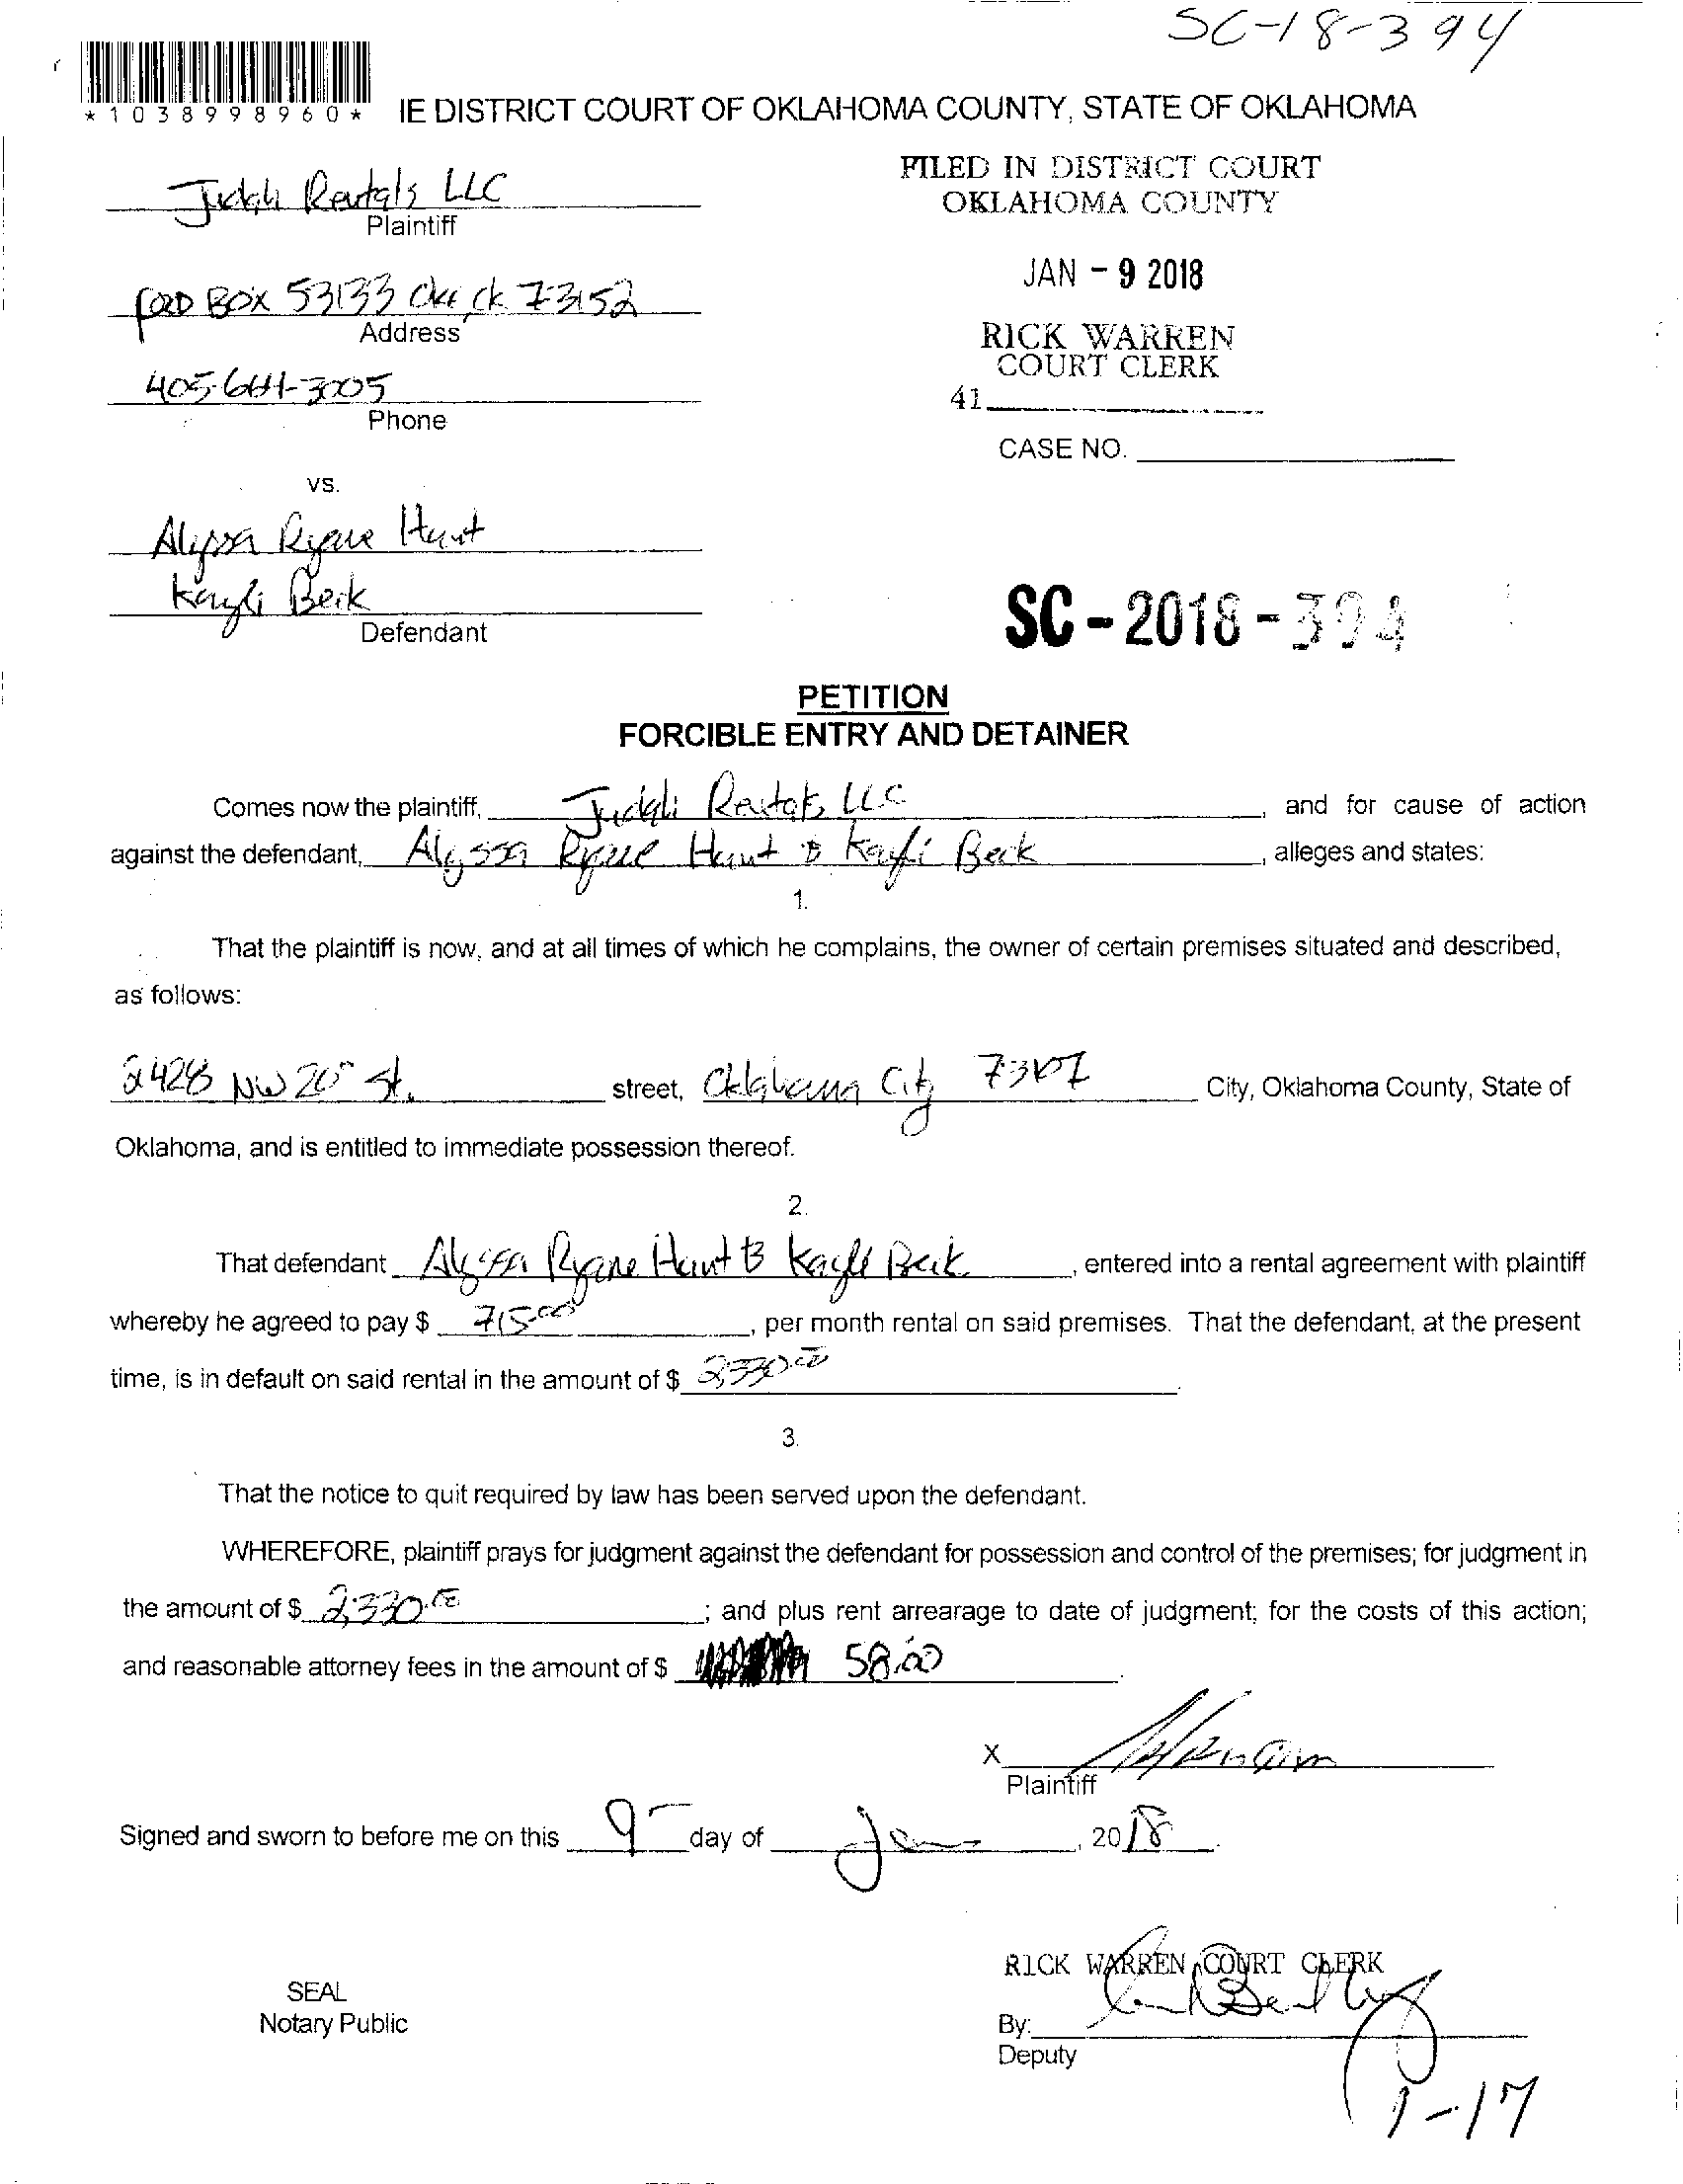 SC-18-394
*1038998960*
IE DISTRICT COURT OF OKLAHOMA COUNTY, STATE OF OKLAHOMA
FILED IN DISTRICT COURT
OKLAHOMA COUNTY
Judah Rentals LLC
Plaintiff
JAN - 9 2018
BOX 53133 73152
Address
RICK WARREN
COURT CLERK
405-641-3005
Phone
41
CASE NO.
vs.
Alyssa Ryane Hunt
Kayli Beck
Defendant
SC - 2018 - 394
PETITION
FORCIBLE ENTRY AND DETAINER
Comes now the plaintiff, Judah Rentals LLC, and for cause of action
against the defendant, Alyssa Ryane Hunt & Kayli Beck, alleges and states:
1.
That the plaintiff is now, and at all times of which he complains, the owner of certain premises situated and described,
as follows:
2428 NW 20th St. street, Oklahoma City 73107 City, Oklahoma County, State of
Oklahoma, and is entitled to immediate possession thereof.
2.
That defendant Alyssa Ryane Hunt & Kayli Beck, entered into a rental agreement with plaintiff
whereby he agreed to pay $ 715.00, per month rental on said premises. That the defendant, at the present
time, is in default on said rental in the amount of $ 2,330.00
3.
That the notice to quit required by law has been served upon the defendant.
WHEREFORE, plaintiff prays for judgment against the defendant for possession and control of the premises; for judgment in
the amount of $ 2,330.00; and plus rent arrearage to date of judgment; for the costs of this action;
and reasonable attorney fees in the amount of $ 58.00.
X
Plaintiff
Signed and sworn to before me on this 9 day of Jan, 2018.
RICK WARREN, COURT CLERK
SEAL
Notary Public
By:
Deputy
1-17